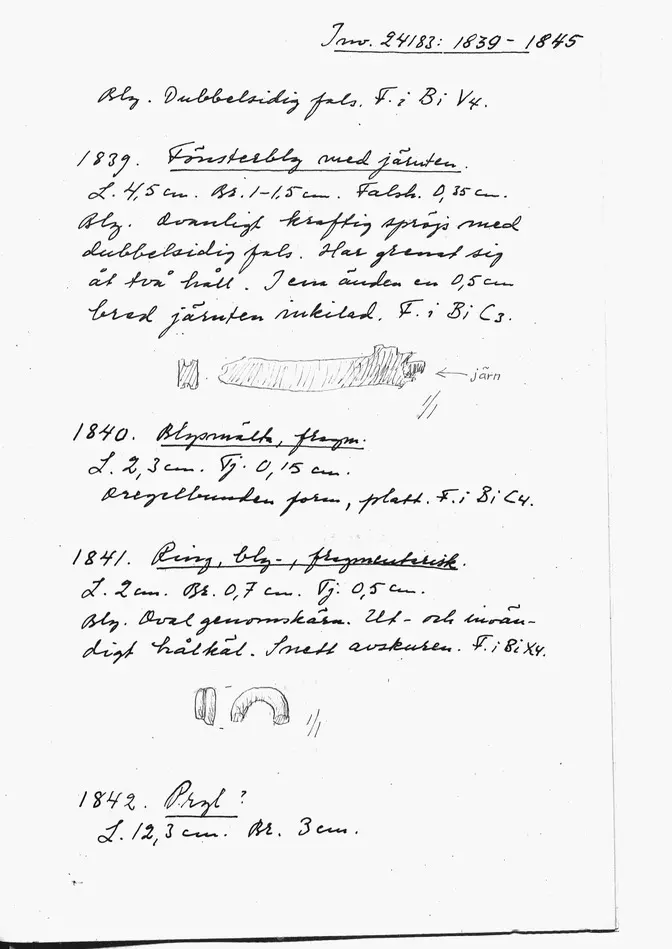 Inv. 24183: 1839 - 1845
Bly. Dubbelsidig fals. F. i B i V4.
1839. Fönsterbly med järnten.
L. 4,5 cm. Br. 1-1,5 cm. Falsh. 0,35 cm.
Bly. Ovanligt kraftig spröjs med
dubbelsidig fals. Har grenat sig
åt två håll. I ena änden en 0,5 cm
bred järnten inkilad. F. i B i C3.
järn
1/1
1840. Blysmälta, fragm.
L. 2,3 cm. Tj. 0,15 cm.
Oregelbunden form, platt. F. i B i C4.
1841. Ring, bly-, fragmentarisk.
L. 2 cm. Br. 0,7 cm. Tj. 0,5 cm.
Bly. Oval genomskärn. Ut- och invän-
digt hålkäl. Snett avskuren. F. i B i X4.
1/1
1842. Pryl?
L. 12,3 cm. Br. 3 cm.